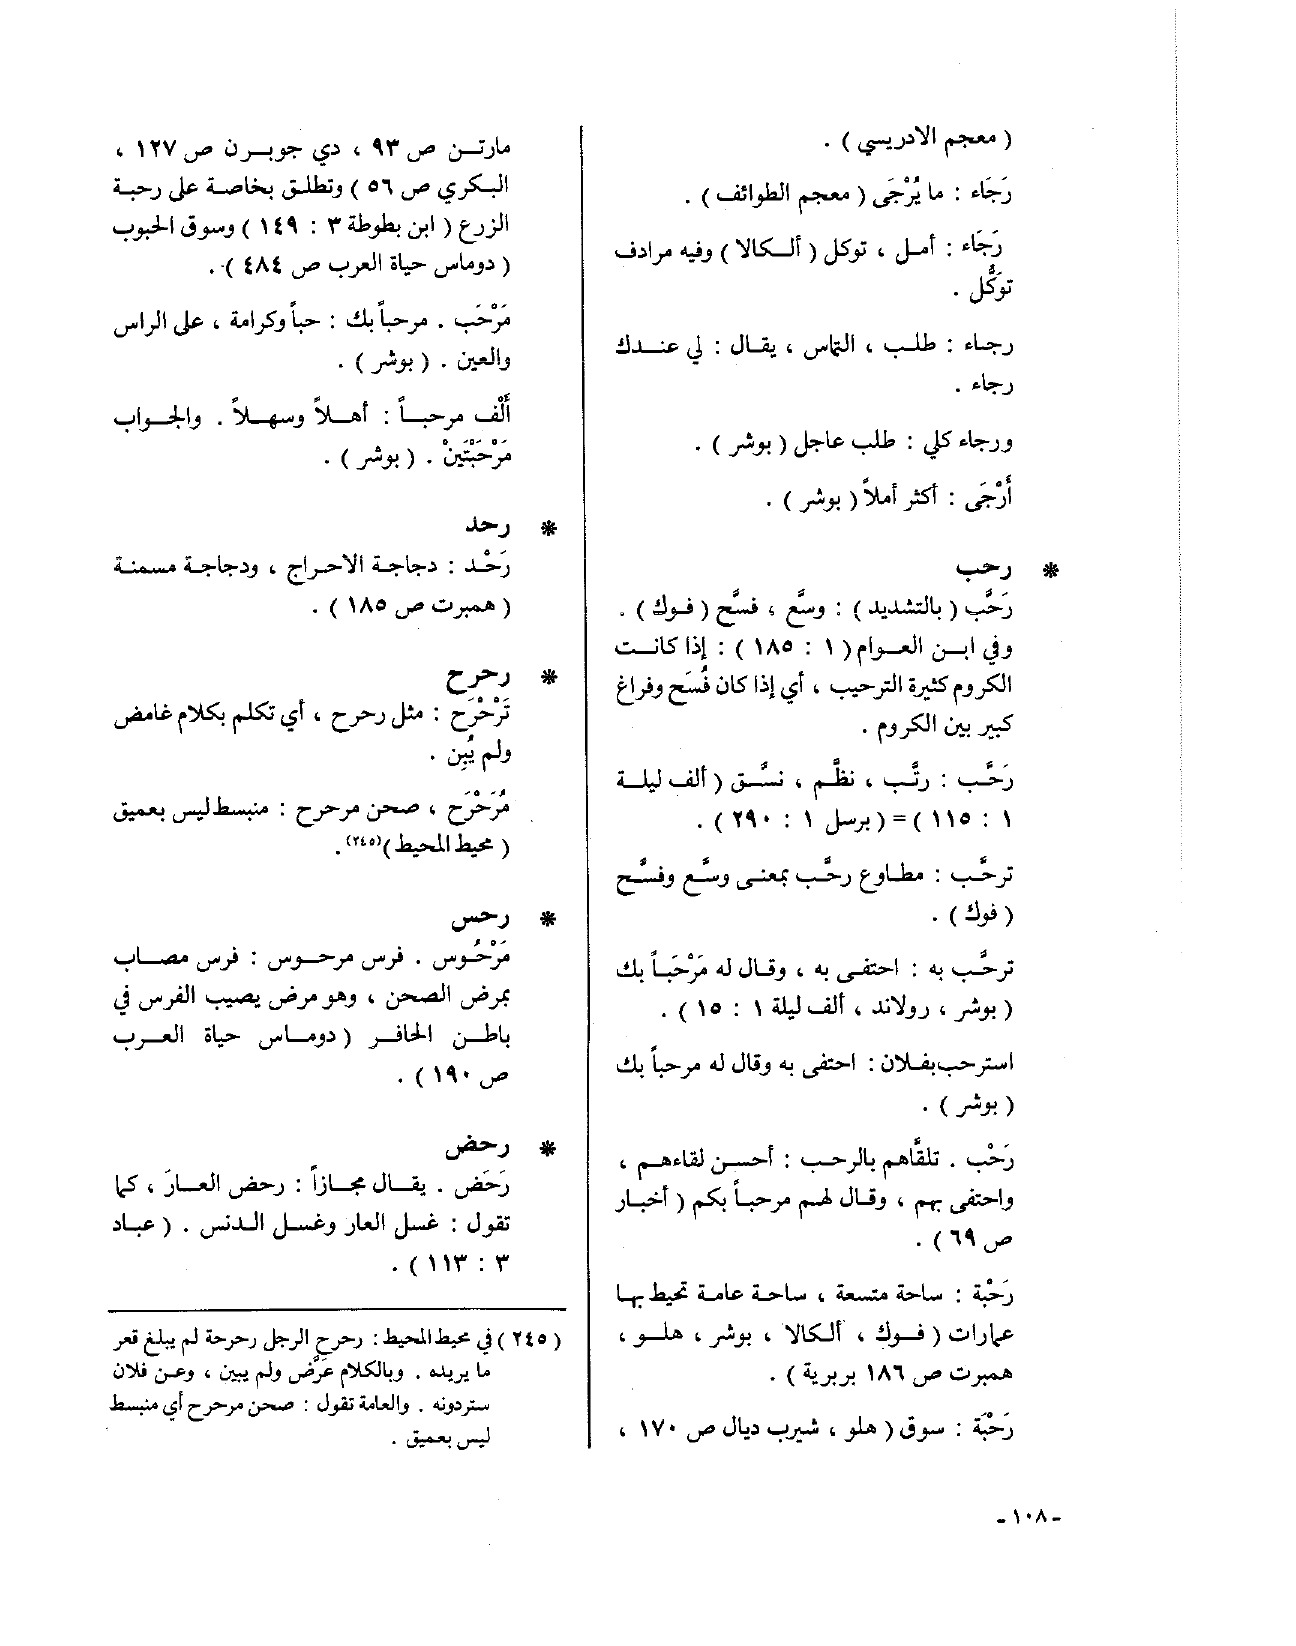 ( معجم الادريسي ) .
رَجَاء : ما يُرْجَى ( معجم الطوائف ) .
رَجَاء : أمل ، توكل ( ألكالا ) وفيه مرادف
توكُّل .
رجاء : طلب ، التماس ، يقال : لي عندك
رجاء .
ورجاء كلي : طلب عاجل ( بوشر ) .
أَرْجَى : أكثر أملاً ( بوشر ) .
* رحب
رَحَّب ( بالتشديد ) : وسَّع ، فسَّح ( فوك ) .
وفي ابن العوام ( ١ : ١٨٥ ) : إذا كانت
الكروم كثيرة الترحيب ، أي إذا كان فُسَح وفراغ
كبير بين الكروم .
رَحَّب : رتَّب ، نظَّم ، نسَّق ( ألف ليلة
١ : ١١٥ ) = ( برسل ١ : ٢٩٠ ) .
ترحَّب : مطاوع رحَّب بمعنى وسَّع وفسَّح
( فوك ) .
ترحَّب به : احتفى به ، وقال له مَرْحَباً بك
( بوشر ، رولاند ، ألف ليلة ١ : ١٥ ) .
استرحب بفلان : احتفى به وقال له مرحباً بك
( بوشر ) .
رَحْب . تلقَّاهم بالرحب : أحسن لقاءهم ،
واحتفى بهم ، وقال لهم مرحباً بكم ( أخبار
ص ٦٩ ) .
رَحْبة : ساحة متسعة ، ساحة عامة تحيط بها
عمارات ( فوك ، ألكالا ، بوشر ، هلو ،
همبرت ص ١٨٦ بربرية ) .
رَحْبَة : سوق ( هلو ، شيرب ديال ص ١٧٠ ،
مارتن ص ٩٣ ، دي جوبرن ص ١٢٧ ،
البكري ص ٥٦ ) وتطلق بخاصة على رحبة
الزرع ( ابن بطوطة ٣ : ١٤٩ ) وسوق الحبوب
( دوماس حياة العرب ص ٤٨٤ ) .
مَرْحَب . مرحباً بك : حباً وكرامة ، على الراس
والعين . ( بوشر ) .
أَلْف مرحباً : أهلاً وسهلاً . والجواب
مَرْحَبْتَيْن . ( بوشر ) .
* رحد
رَحْد : دجاجة الاحراج ، ودجاجة مسمنة
( همبرت ص ١٨٥ ) .
* رحرح
تَرْحْرَح : مثل رحرح ، أي تكلم بكلام غامض
ولم يُبِن .
مُرَحْرَح ، صحن مرحرح : منبسط ليس بعميق
( محيط المحيط )(٢٤٥) .
* رحس
مَرْحُوس . فرس مرحوس : فرس مصاب
بمرض الصحن ، وهو مرض يصيب الفرس في
باطن الحافر ( دوماس حياة العرب
ص ١٩٠ ) .
* رحض
رَحَض . يقال مجازاً : رحض العارَ ، كما
تقول : غسل العار وغسل الدنس . ( عباد
٣ : ١١٣ ) .
( ٢٤٥ ) في محيط المحيط : رحرح الرجل رحرحة لم يبلغ قعر
ما يريده . وبالكلام عَرَّض ولم يبين ، وعن فلان
ستردونه . والعامة تقول : صحن مرحرح أي منبسط
ليس بعميق .
- ١٠٨ -